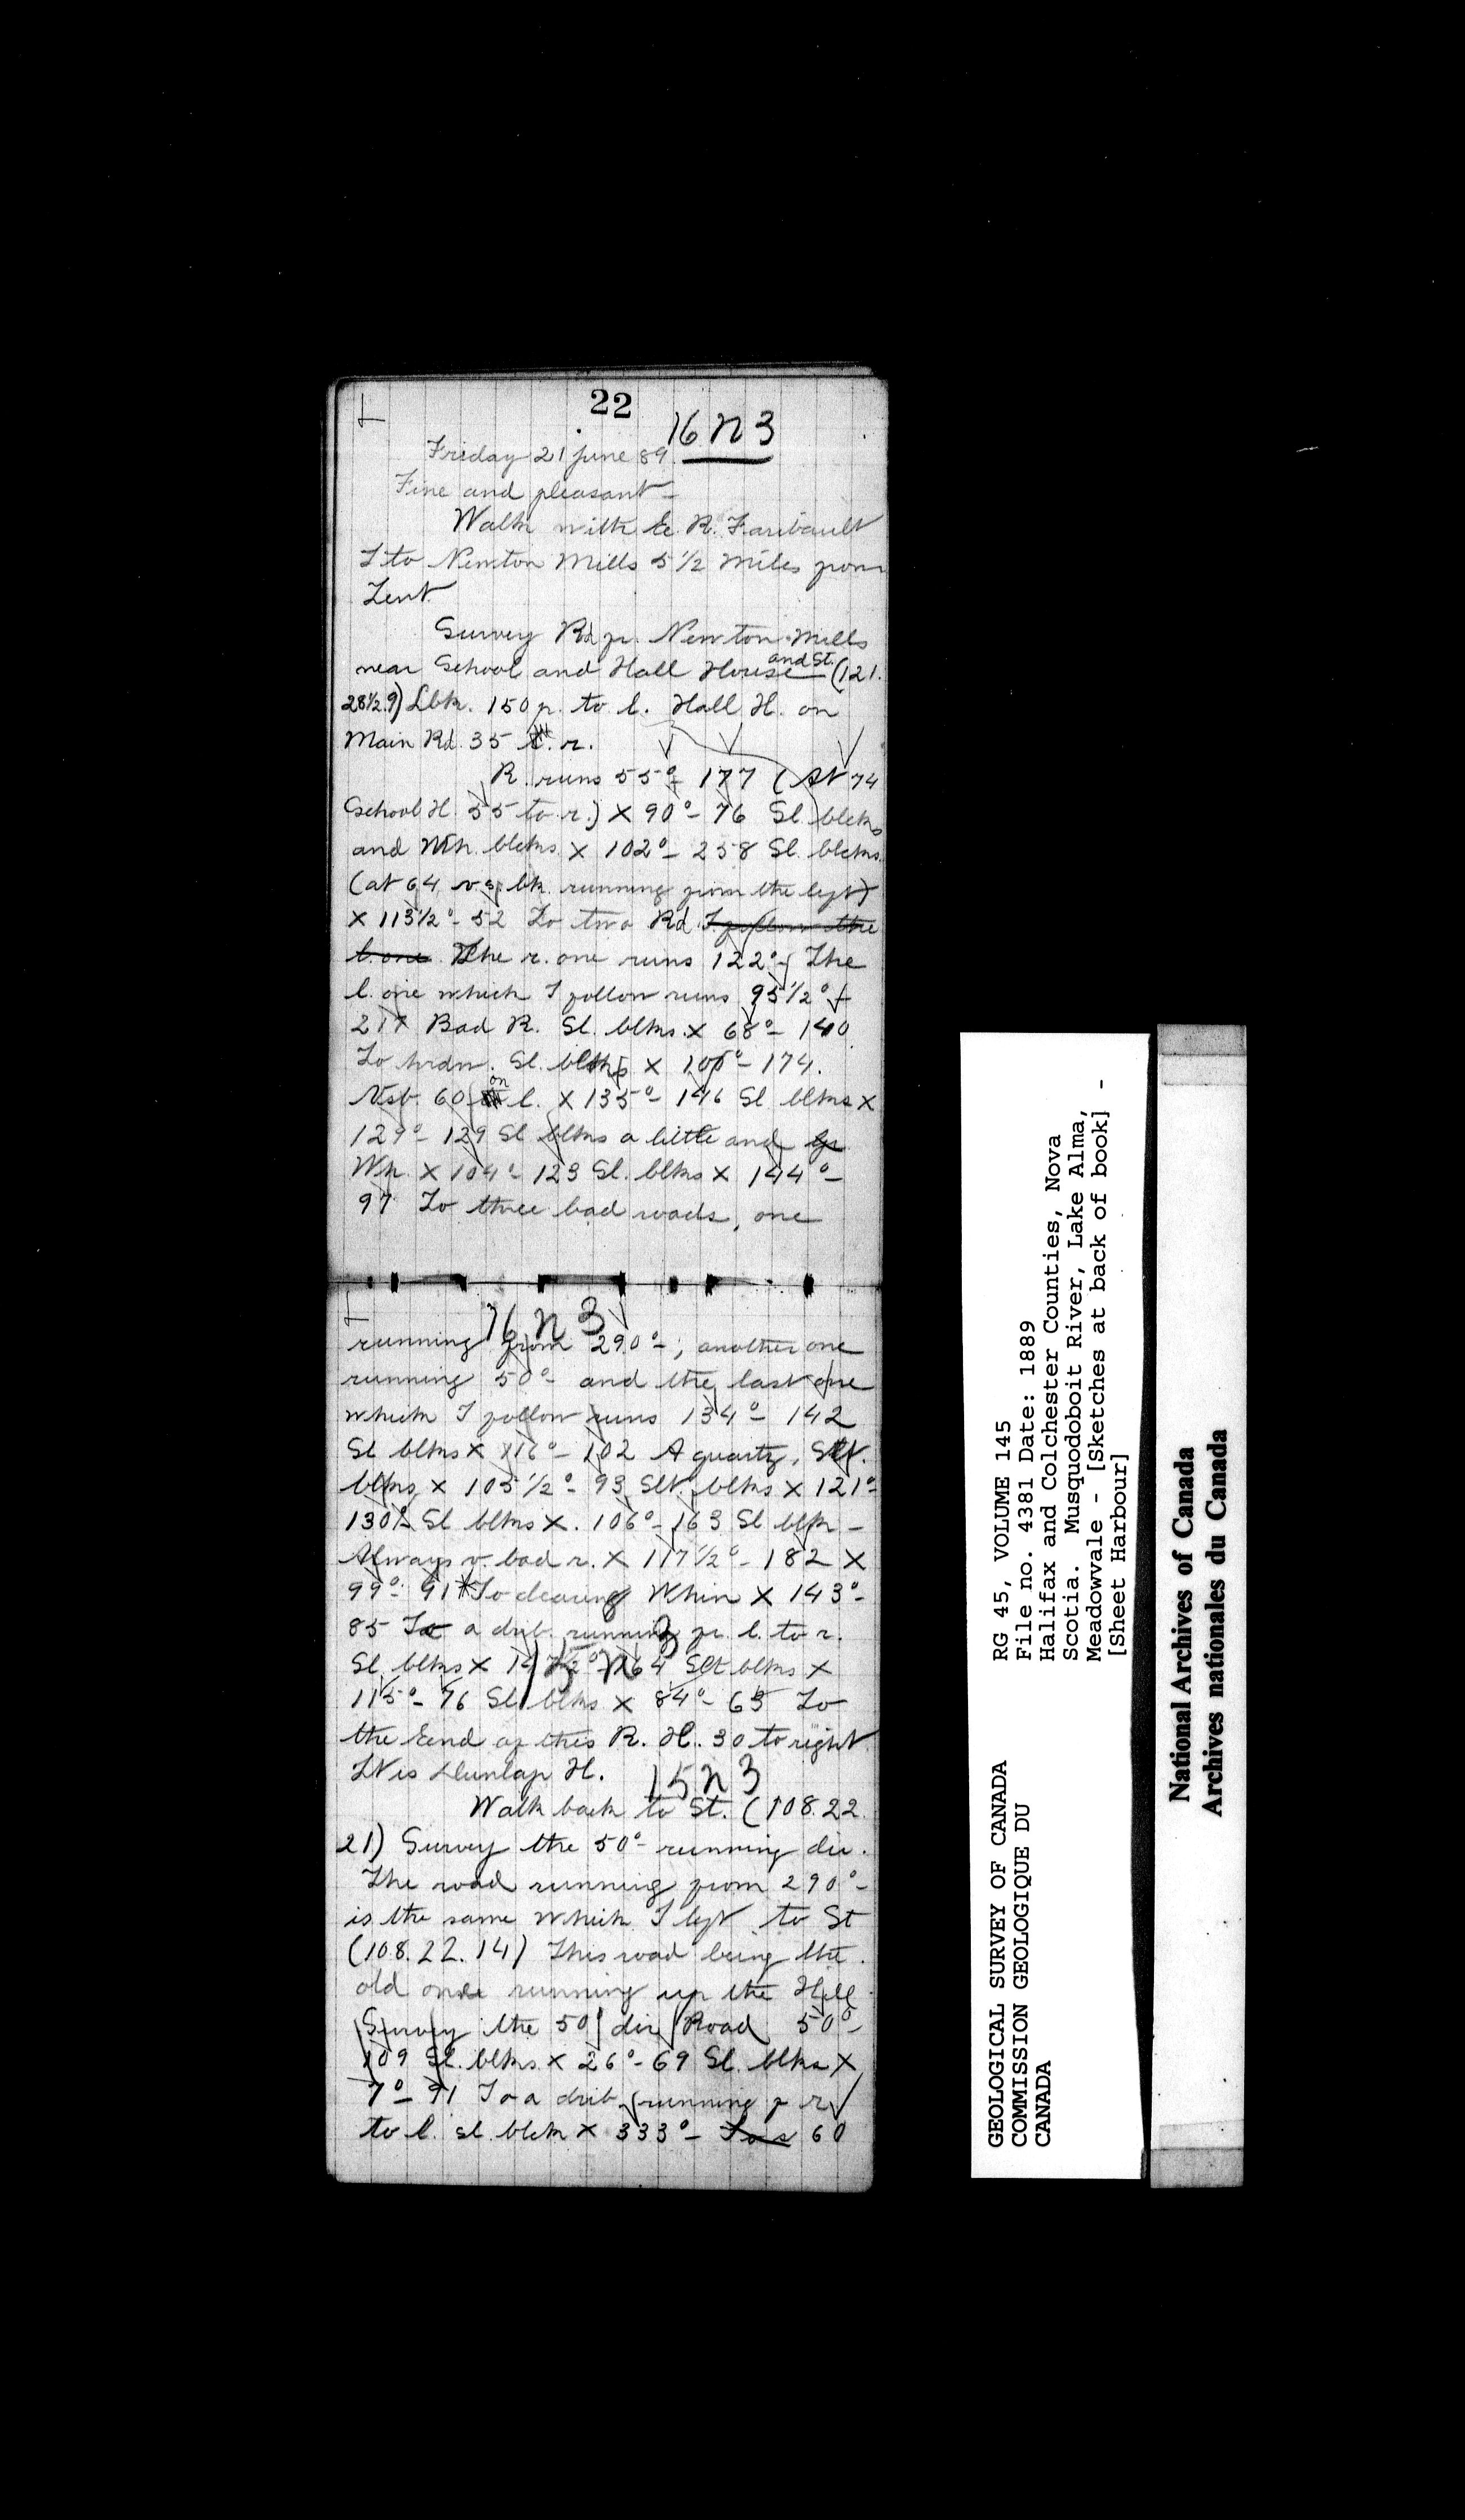 22
16 N 3
Friday 21 June 89
Fine and pleasant -
Walk with E. R. Faribault
I to Newton Mills 5 1/2 miles from
Tent.
Survey Rd fr. Newton Mills
near School and Hall House and St. (121.
28 1/2.9) Lbk. 150 p. to l. Hall H. on
Main Rd. 35 r.
R. runs 55° - 177 (At 74
School H. 55 to r.) X 90° - 76 Sl. blcks
and Wh. blcks X 102° - 258 Sl. blcks.
(at 64 v. s. bk. running from the left)
X 113 1/2° - 52 To two Rd. I follow the
l. one. The r. one runs 122° - The
l. one which I follow runs 95 1/2° -
217 Bad R. Sl. blks. X 68° - 140.
To . Sl. blks X 105° - 174.
60 on l. X 135° - 146 Sl blks X
129° - 129 Sl blks a little and
Wh. X 104° - 123 Sl. blks X 144° -
97 To three bad roads, one
16 N 3
running from 290° - ; another one
running 50° - and the last one
which I follow runs 134° - 142
Sl blks X 116° - 102 A quartz, Slt.
blks X 105 1/2° - 93 Slt. blks X 121° -
130 Sl blks X. 106° - 163 Sl blk -
Always v. bad r. X 117 1/2° - 182 X
99° - 91 To clearing Whin X 143° -
85 To a drib. running fr. l. to r.
15 N 3
Sl. blks X 64 Slt blks X
115° - 76 Sl. blks X 84° - 65 To
the End of this R. H. 30 to right
It is Dunlap H.
15 N 3
Walk back to St. (108.22.
21) Survey the 50° - running dir.
The road running from 290° -
is the same which I left to St
(108.22.14) This road being the
old one running up the Hill.
Survey the 50° dir Road 50° -
109 Sl. blks. X 26° - 69 Sl. blks X
7° - 91 To a drib. running f r
to l. sl. blck X 333° - 60
GEOLOGICAL SURVEY OF CANADA
COMMISSION GEOLOGIQUE DU
CANADA
RG 45, VOLUME 145
File no. 4381 Date: 1889
Halifax and Colchester Counties, Nova
Scotia. Musquodoboit River, Lake Alma,
Meadowvale - [Sketches at back of book] -
[Sheet Harbour]
National Archives of Canada
Archives nationales du Canada